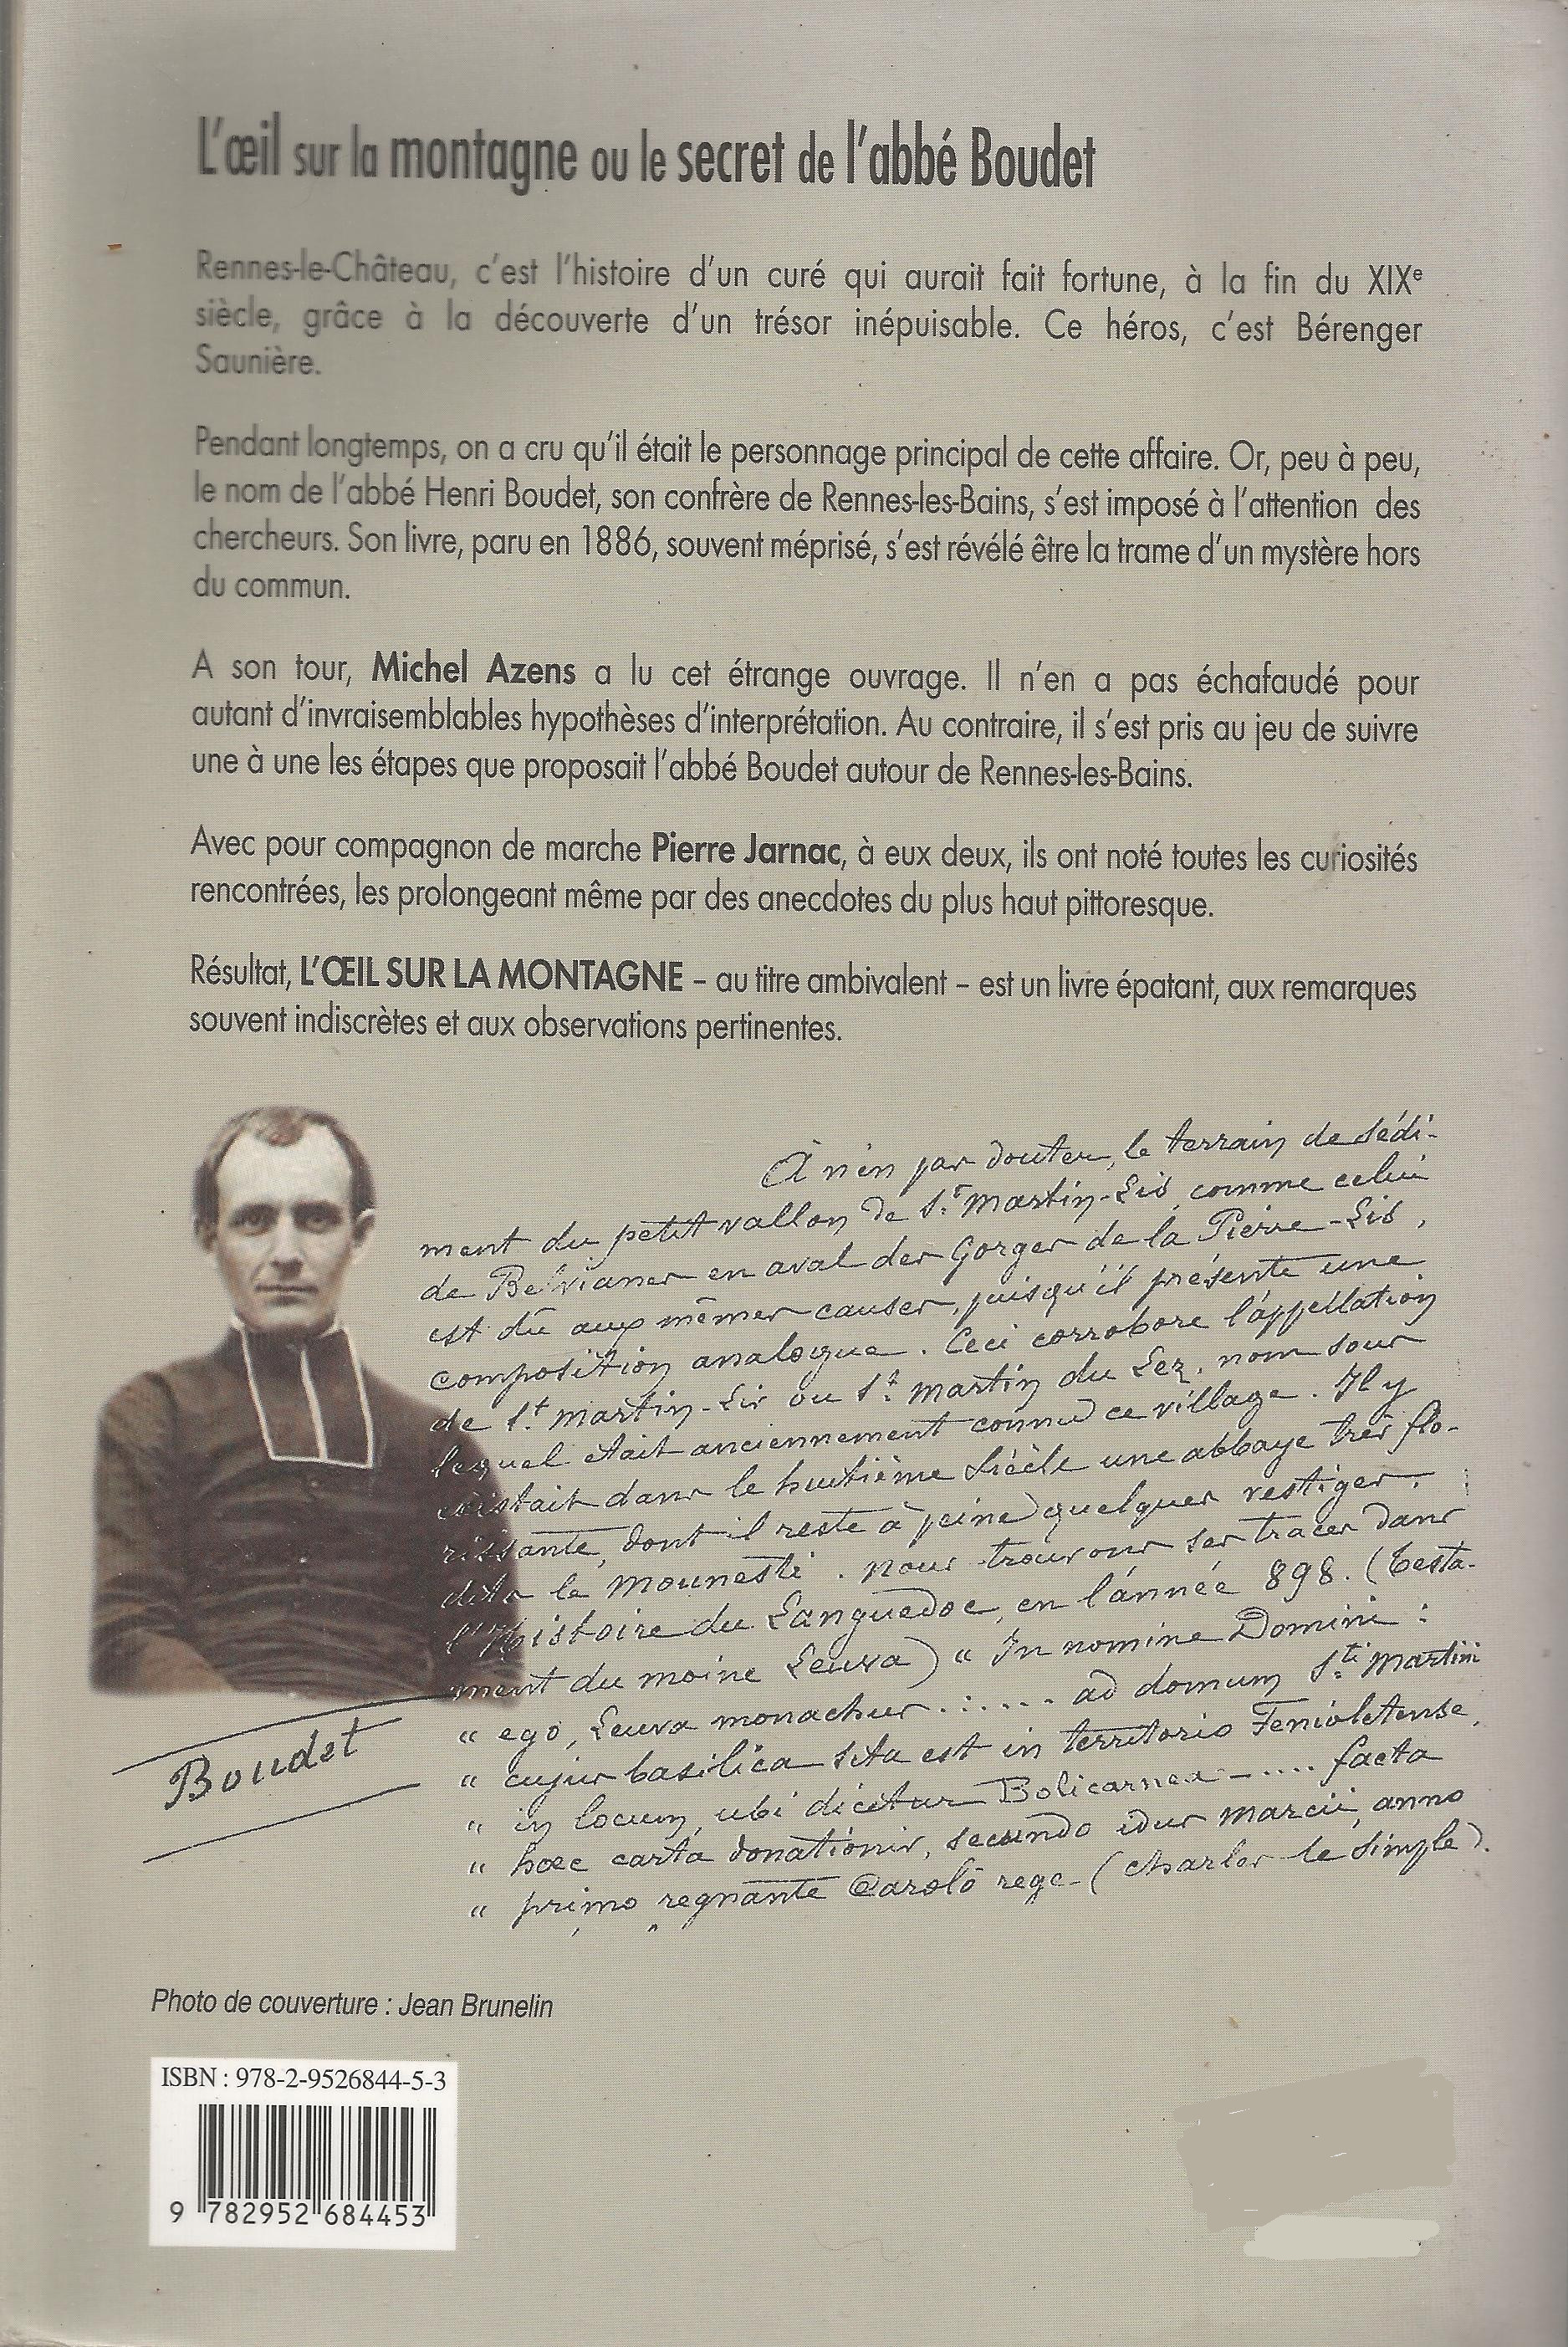 L'œil sur la montagne ou le secret de l'abbé Boudet
Rennes-le-Château, c'est l'histoire d'un curé qui aurait fait fortune, à la fin du XIXe
siècle, grâce à la découverte d'un trésor inépuisable. Ce héros, c'est Bérenger
Saunière.
Pendant longtemps, on a cru qu'il était le personnage principal de cette affaire. Or, peu à peu,
le nom de l'abbé Henri Boudet, son confrère de Rennes-les-Bains, s'est imposé à l'attention des
chercheurs. Son livre, paru en 1886, souvent méprisé, s'est révélé être la trame d'un mystère hors
du commun.
A son tour, Michel Azens a lu cet étrange ouvrage. Il n'en a pas échafaudé pour
autant d'invraisemblables hypothèses d'interprétation. Au contraire, il s'est pris au jeu de suivre
une à une les étapes que proposait l'abbé Boudet autour de Rennes-les-Bains.
Avec pour compagnon de marche Pierre Jarnac, à eux deux, ils ont noté toutes les curiosités
rencontrées, les prolongeant même par des anecdotes du plus haut pittoresque.
Résultat, L'ŒIL SUR LA MONTAGNE – au titre ambivalent – est un livre épatant, aux remarques
souvent indiscrètes et aux observations pertinentes.
À n'en pas douter, le terrain de sédi-
ment du petit vallon de St Martin-Lis, comme celui
de Belvianes en aval des Gorges de la Pierre-Lis,
est dû aux mêmes causes, puisqu'il présente une
composition analogue. Ceci corrobore l'appellation
de St. Martin-Lis ou St. Martin du Lez, nom sous
lequel était anciennement connu ce village. Il y
existait dans le huitième siècle une abbaye très flo-
rissante, dont il reste à peine quelques vestiges.
dits le Mounesti. Nous trouvons ses traces dans
l'Histoire du Languedoc, en l'année 898. (Testa-
ment du moine Leuva) " In nomine Domini :
" ego, Leuva monachus ...... ad domum Sti Martini
" cujus basilica sita est in territorio Fenioletense,
" in locum, ubi dicitur Bolicarnea ..... facta
" hœc carta donationis, secundo idus marcii, anno
" primo regnante Carolo rege - (Charles le Simple).
Boudet
Photo de couverture : Jean Brunelin
ISBN : 978-2-9526844-5-3
9 782952 684453